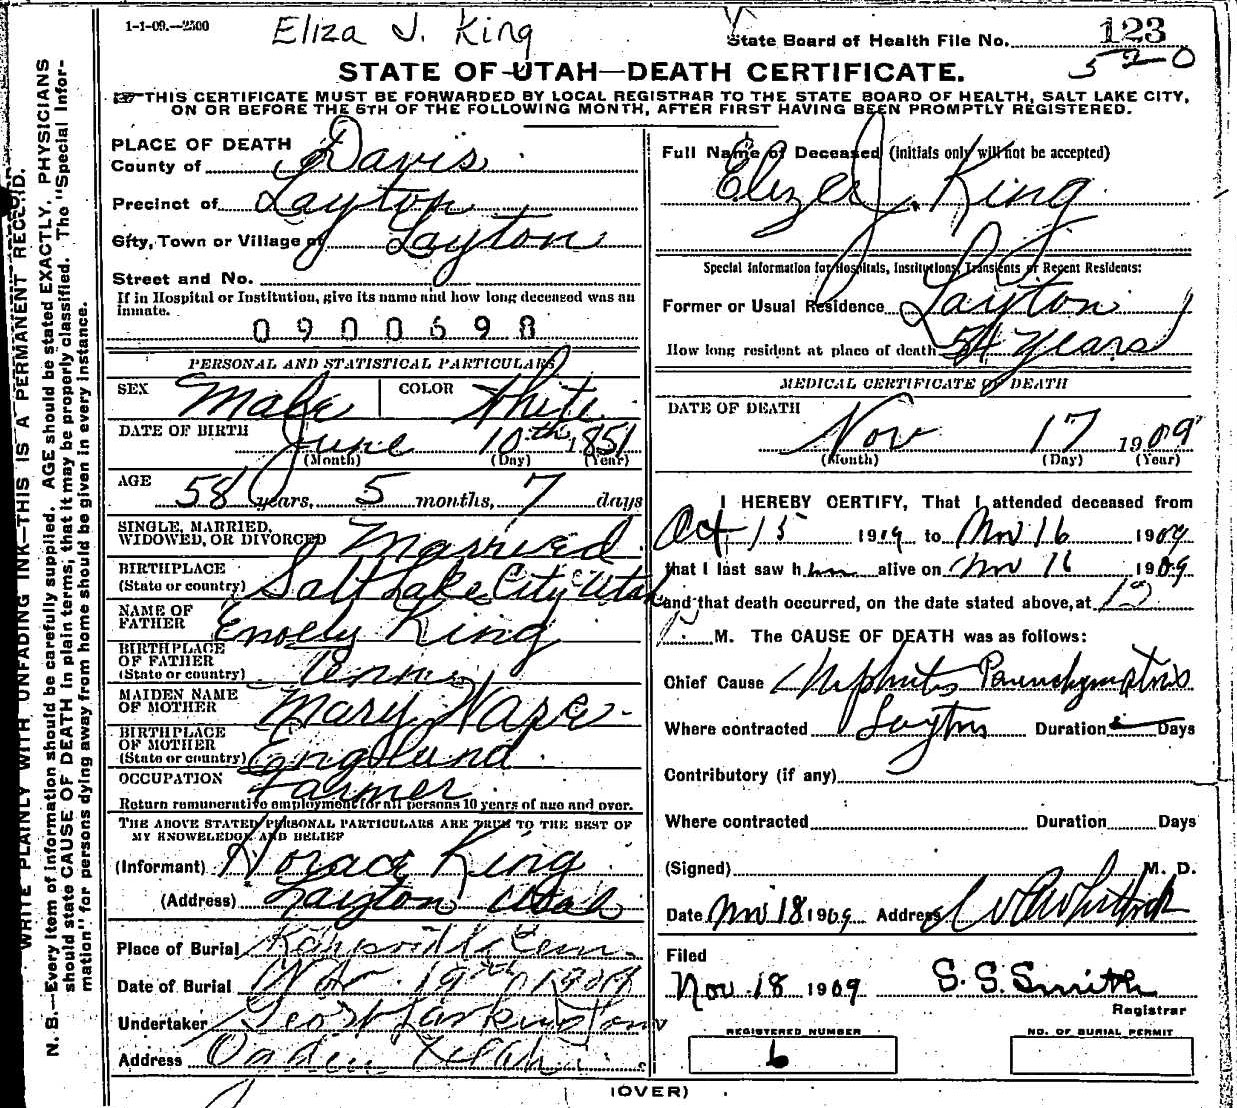 1-1-09.—2500
Eliza J. King
State Board of Health File No. 123
520
STATE OF UTAH—DEATH CERTIFICATE.
THIS CERTIFICATE MUST BE FORWARDED BY LOCAL REGISTRAR TO THE STATE BOARD OF HEALTH, SALT LAKE CITY,
ON OR BEFORE THE 5TH OF THE FOLLOWING MONTH, AFTER FIRST HAVING BEEN PROMPTLY REGISTERED.
WRITE PLAINLY WITH UNFADING INK—THIS IS A PERMANENT RECORD.
N. B.—Every item of information should be carefully supplied. AGE should be stated EXACTLY. PHYSICIANS
should state CAUSE OF DEATH in plain terms, that it may be properly classified. The "Special Infor-
mation" for persons dying away from home should be given in every instance.
PLACE OF DEATH
County of Davis
Precinct of Layton
City, Town or Village of Layton
Street and No.
If in Hospital or Institution, give its name and how long deceased was an
inmate.
0900698
PERSONAL AND STATISTICAL PARTICULARS
SEX Male COLOR White
DATE OF BIRTH June 10th 1851
(Month) (Day) (Year)
AGE 58 years, 5 months, 7 days
SINGLE, MARRIED,
WIDOWED, OR DIVORCED Married
BIRTHPLACE
(State or country) Salt Lake City Utah
NAME OF
FATHER King
BIRTHPLACE
OF FATHER
(State or country)
MAIDEN NAME
OF MOTHER Mary
BIRTHPLACE
OF MOTHER
(State or country) England
OCCUPATION Farmer
Return remunerative employment for all persons 10 years of age and over.
THE ABOVE STATED PERSONAL PARTICULARS ARE TRUE TO THE BEST OF
MY KNOWLEDGE AND BELIEF
(Informant) Horace King
(Address) Layton Utah
Place of Burial Cem.
Date of Burial Nov 19th 1909
Undertaker
Address Ogden Utah
Full Name of Deceased (initials only will not be accepted)
Eliza J. King
Special Information for Hospitals, Institutions, Transients or Recent Residents:
Former or Usual Residence Layton
How long resident at place of death 54 years
MEDICAL CERTIFICATE OF DEATH
DATE OF DEATH
Nov 17 1909
(Month) (Day) (Year)
I HEREBY CERTIFY, That I attended deceased from
Oct 15 1909 to Nov 16 1909
that I last saw him alive on Nov 16 1909
and that death occurred, on the date stated above, at 12
M. The CAUSE OF DEATH was as follows:
Chief Cause Nephritis
Where contracted Layton Duration Days
Contributory (if any)
Where contracted Duration Days
(Signed) M. D.
Date Nov 18 1909 Address
Filed
Nov. 18 1909 S. S. Smith
Registrar
REGISTERED NUMBER
6
NO. OF BURIAL PERMIT
(OVER)